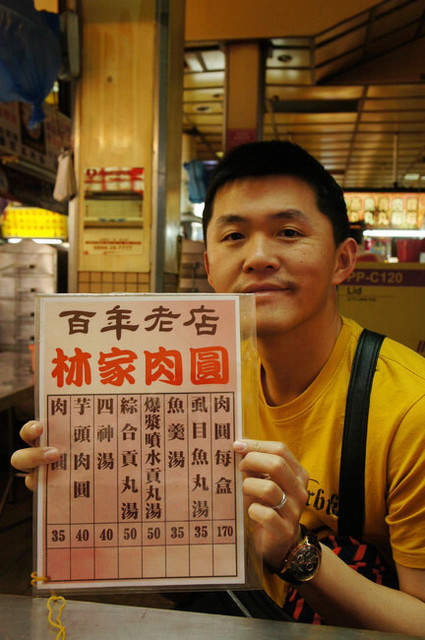 百年老店
林家肉圓
肉圓每盒 170
虱目魚丸湯 35
魚羹湯 35
爆漿噴水貢丸湯 50
綜合貢丸湯 50
四神湯 40
芋頭肉圓 40
肉圓 35
PP-C120
Lid